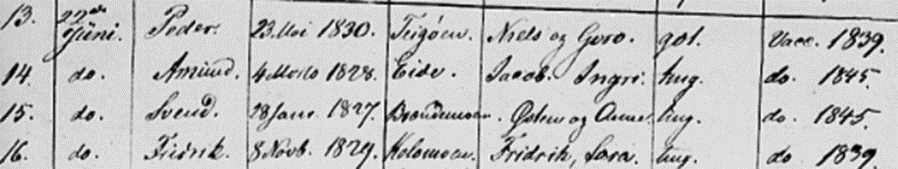 13. 22de Juni. Peder. 23 Mai 1830. Teigöen. Niels og Guro. got. Vacc. 1839.
14. do. Amund. 4 Marts 1828. Eide. Jacob. Ingri. tmg. do. 1845.
15. do. Svend. 28 Janr 1827. og Anne. tmg. do. 1845.
16. do. Fridrik. 8 Novb. 1829. Fridrik, Sara. tmg. do 1839.